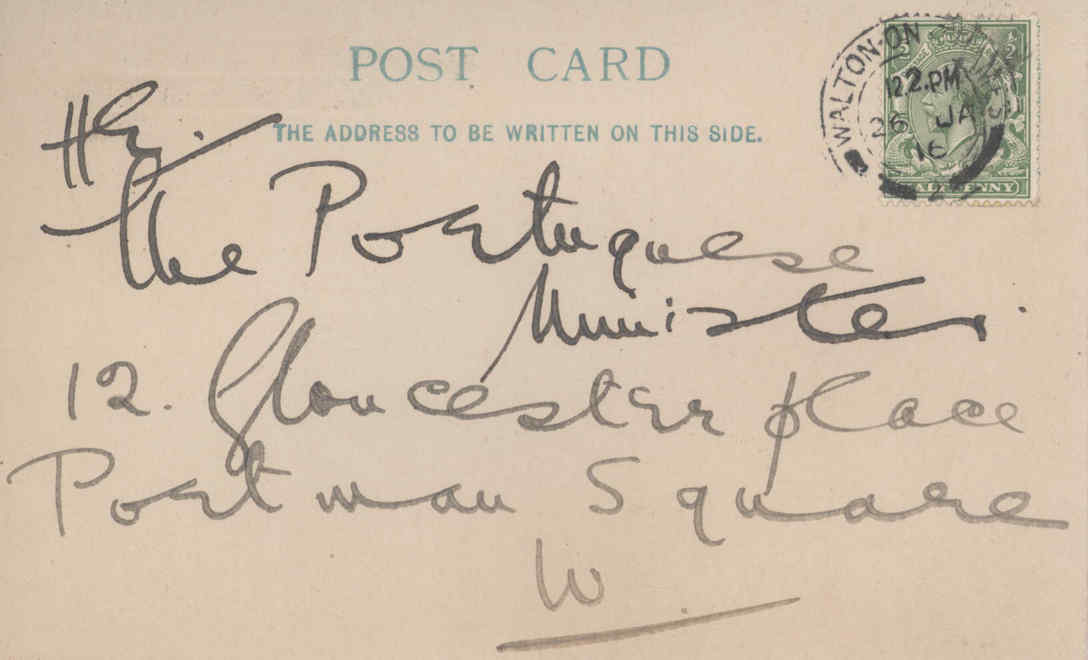 POST CARD
THE ADDRESS TO BE WRITTEN ON THIS SIDE.
H.E.
The Portuguese
Minister.
12. Gloucester Place
Portman Square
W
WALTON-ON
12 2.PM
26 JA
16
HALFPENNY